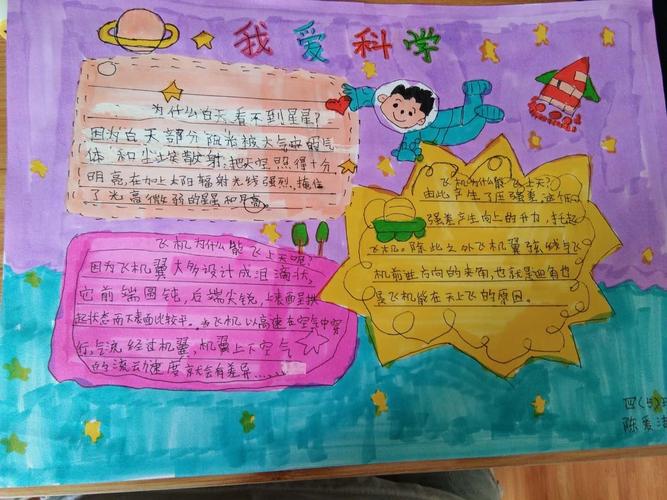 我爱科学
为什么白天看不到星星?
因为白天部分阳光被大气中的气
体和尘埃散射,把天空照得十分
明亮,在加上太阳辐射光线强烈,掩住
了光高微弱的星星和月亮。
飞机为什么能飞上天呢?
因为飞机翼大多设计成泪滴状,
它前端圆钝,后端尖锐,上表面呈拱
起状态而下表面比较平。当飞机以高速在空气中穿
行,气流经过机翼,机翼上下空气
的流动速度就会有差异……
飞机为什么能飞上天?
由此产生了压强差,这个压
强差产生向上的升力,托起
飞机。除此之外飞机翼弦线与飞
机前进方向的夹角,也就是迎角也
是飞机能在天上飞的原因。
四(5)班
陈爱